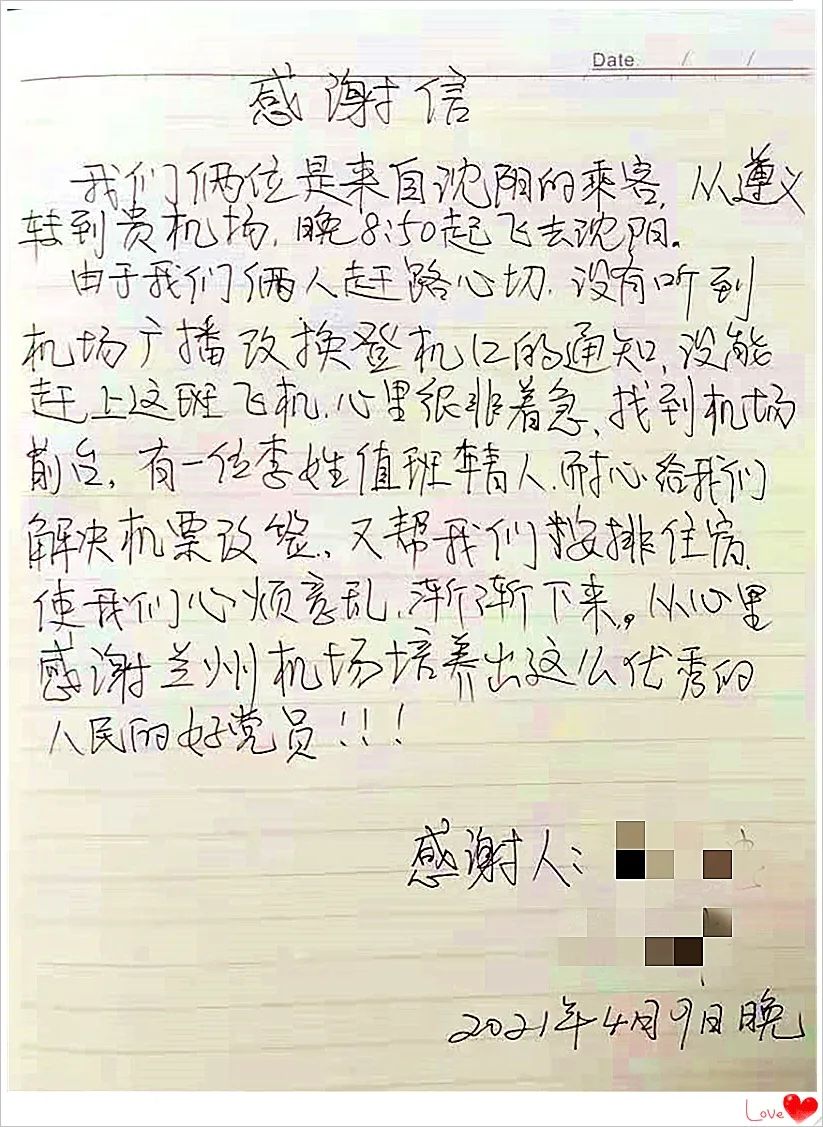 Date / /
感谢信
我们俩位是来自沈阳的乘客,从遵义
转到贵机场,晚8:50起飞去沈阳。
由于我们俩人赶路心切,没有听到
机场广播改换登机口的通知,没能
赶上这班飞机,心里很非着急,找到机场
前台,有一位李姓值班青人,耐心给我们
解决机票改签,又帮我们安排住宿,
使我们心烦意乱,渐渐下来。从心里
感谢兰州机场培养出这么优秀的
人民的好党员!!!
感谢人:
2021年4月9日晚
Love